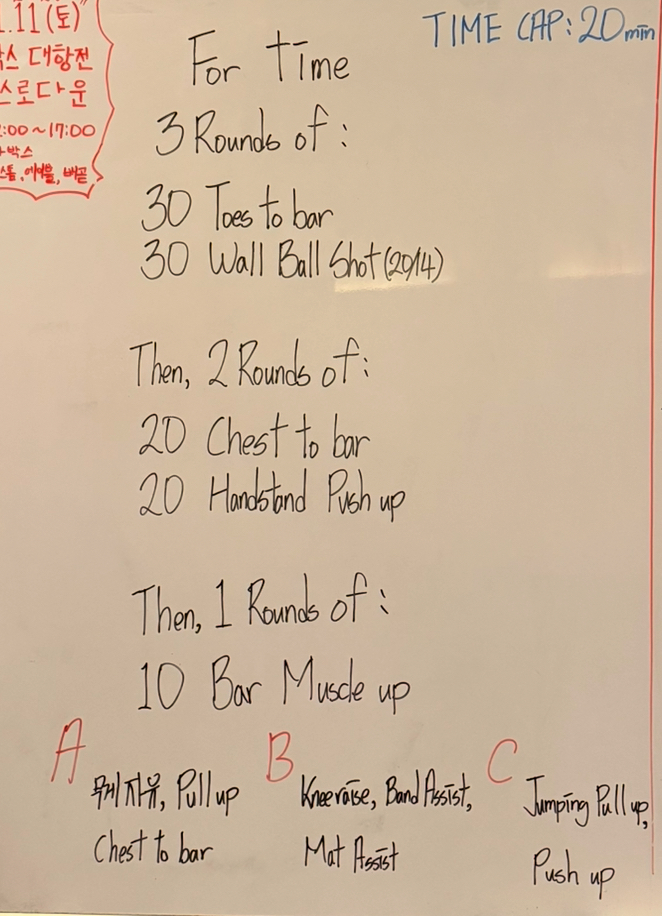 11(토)
대항전
스로다운
:00~17:00
박스
에이블, 배곧
TIME CAP: 20min
For time
3 Rounds of:
30 Toes to bar
30 Wall Ball Shot (20/14)
Then, 2 Rounds of:
20 Chest to bar
20 Handstand Push up
Then, 1 Rounds of:
10 Bar Muscle up
A
무게 자유, Pull up
Chest to bar
B
Knee raise, Band Assist,
Mat Assist
C
Jumping Pull up,
Push up